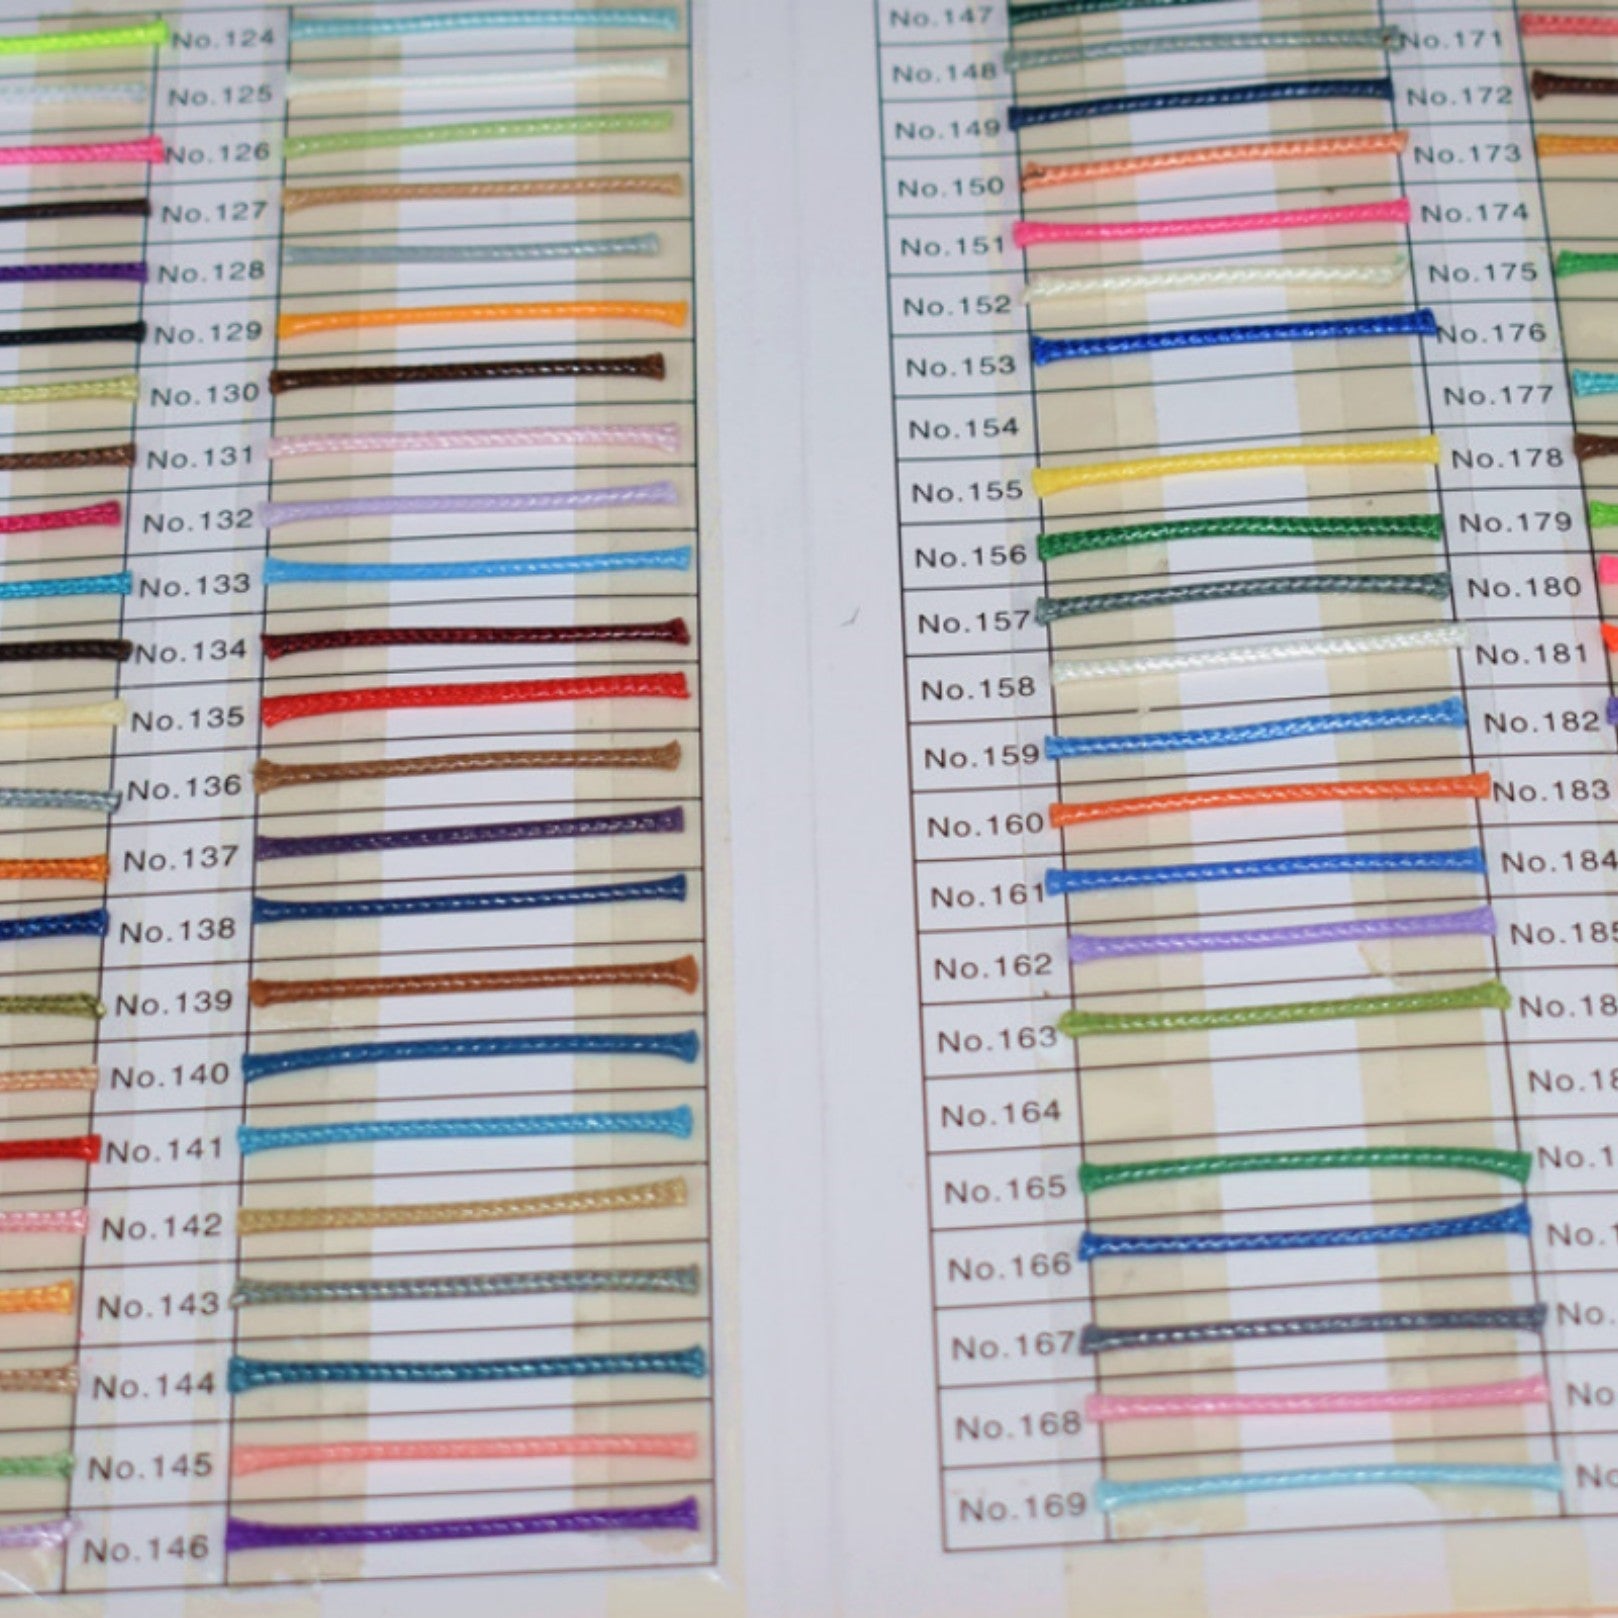 No.124
No.125
No.126
No.127
No.128
No.129
No.130
No.131
No.132
No.133
No.134
No.135
No.136
No.137
No.138
No.139
No.140
No.141
No.142
No.143
No.144
No.145
No.146
No.147
No.148
No.149
No.150
No.151
No.152
No.153
No.154
No.155
No.156
No.157
No.158
No.159
No.160
No.161
No.162
No.163
No.164
No.165
No.166
No.167
No.168
No.169
No.171
No.172
No.173
No.174
No.175
No.176
No.177
No.178
No.179
No.180
No.181
No.182
No.183
No.184
No.185
No.18
No.18
No.1
No.1
No.
No
No